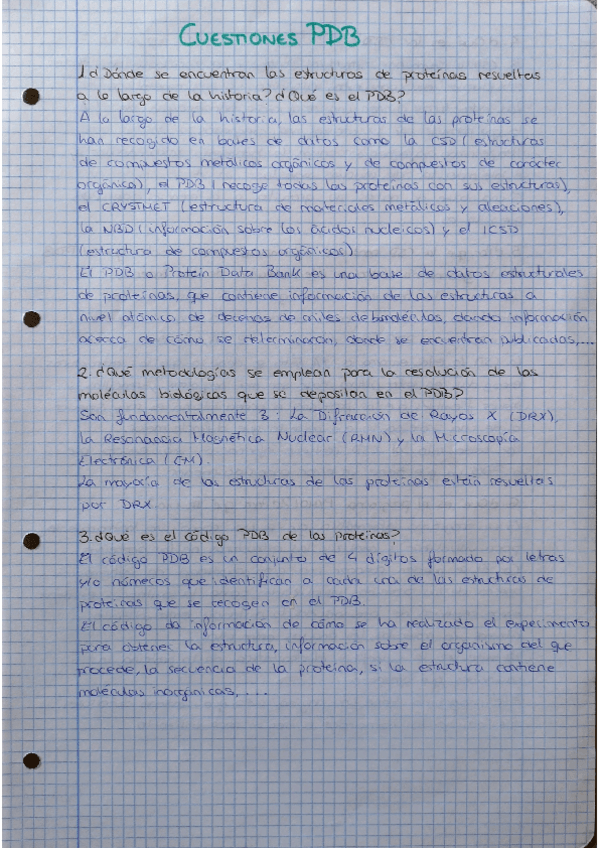 CUESTIONES PDB
1.¿Dónde se encuentran las estructuras de proteínas resueltas
a lo largo de la historia? ¿Qué es el PDB?
A lo largo de la historia, las estructuras de las proteínas se
han recogido en bases de datos como la CSD (estructuras
de compuestos metálicos orgánicos y de compuestos de carácter
orgánico), el PDB (recoge todas las proteínas con sus estructuras),
el CRYSTMET (estructura de materiales metálicos y aleaciones),
la NBD (información sobre los ácidos nucleicos) y el ICSD
(estructura de compuestos orgánicos)
El PDB o Protein Data Bank es una base de datos estructurales
de proteínas, que contiene información de las estructuras a
nivel atómico de decenas de miles de biomoléculas, dando información
acerca de cómo se determinaron, donde se encuentran publicadas,...
2. ¿Qué metodologías se emplean para la resolución de las
moléculas biológicas que se depositan en el PDB?
Son fundamentalmente 3: La Difracción de Rayos X (DRX),
la Resonancia Magnética Nuclear (RMN) y la Microscopía
Electrónica (EM).
La mayoría de las estructuras de las proteínas están resueltas
por DRX
3. ¿Qué es el código PDB de las proteínas?
El código PDB es un conjunto de 4 dígitos formado por letras
y/o números que identifican a cada una de las estructuras de
proteínas que se recogen en el PDB.
El código da información de cómo se ha realizado el experimento
para obtener la estructura, información sobre el organismo del que
procede, la secuencia de la proteína, si la estructura contiene
moléculas inorgánicas,...